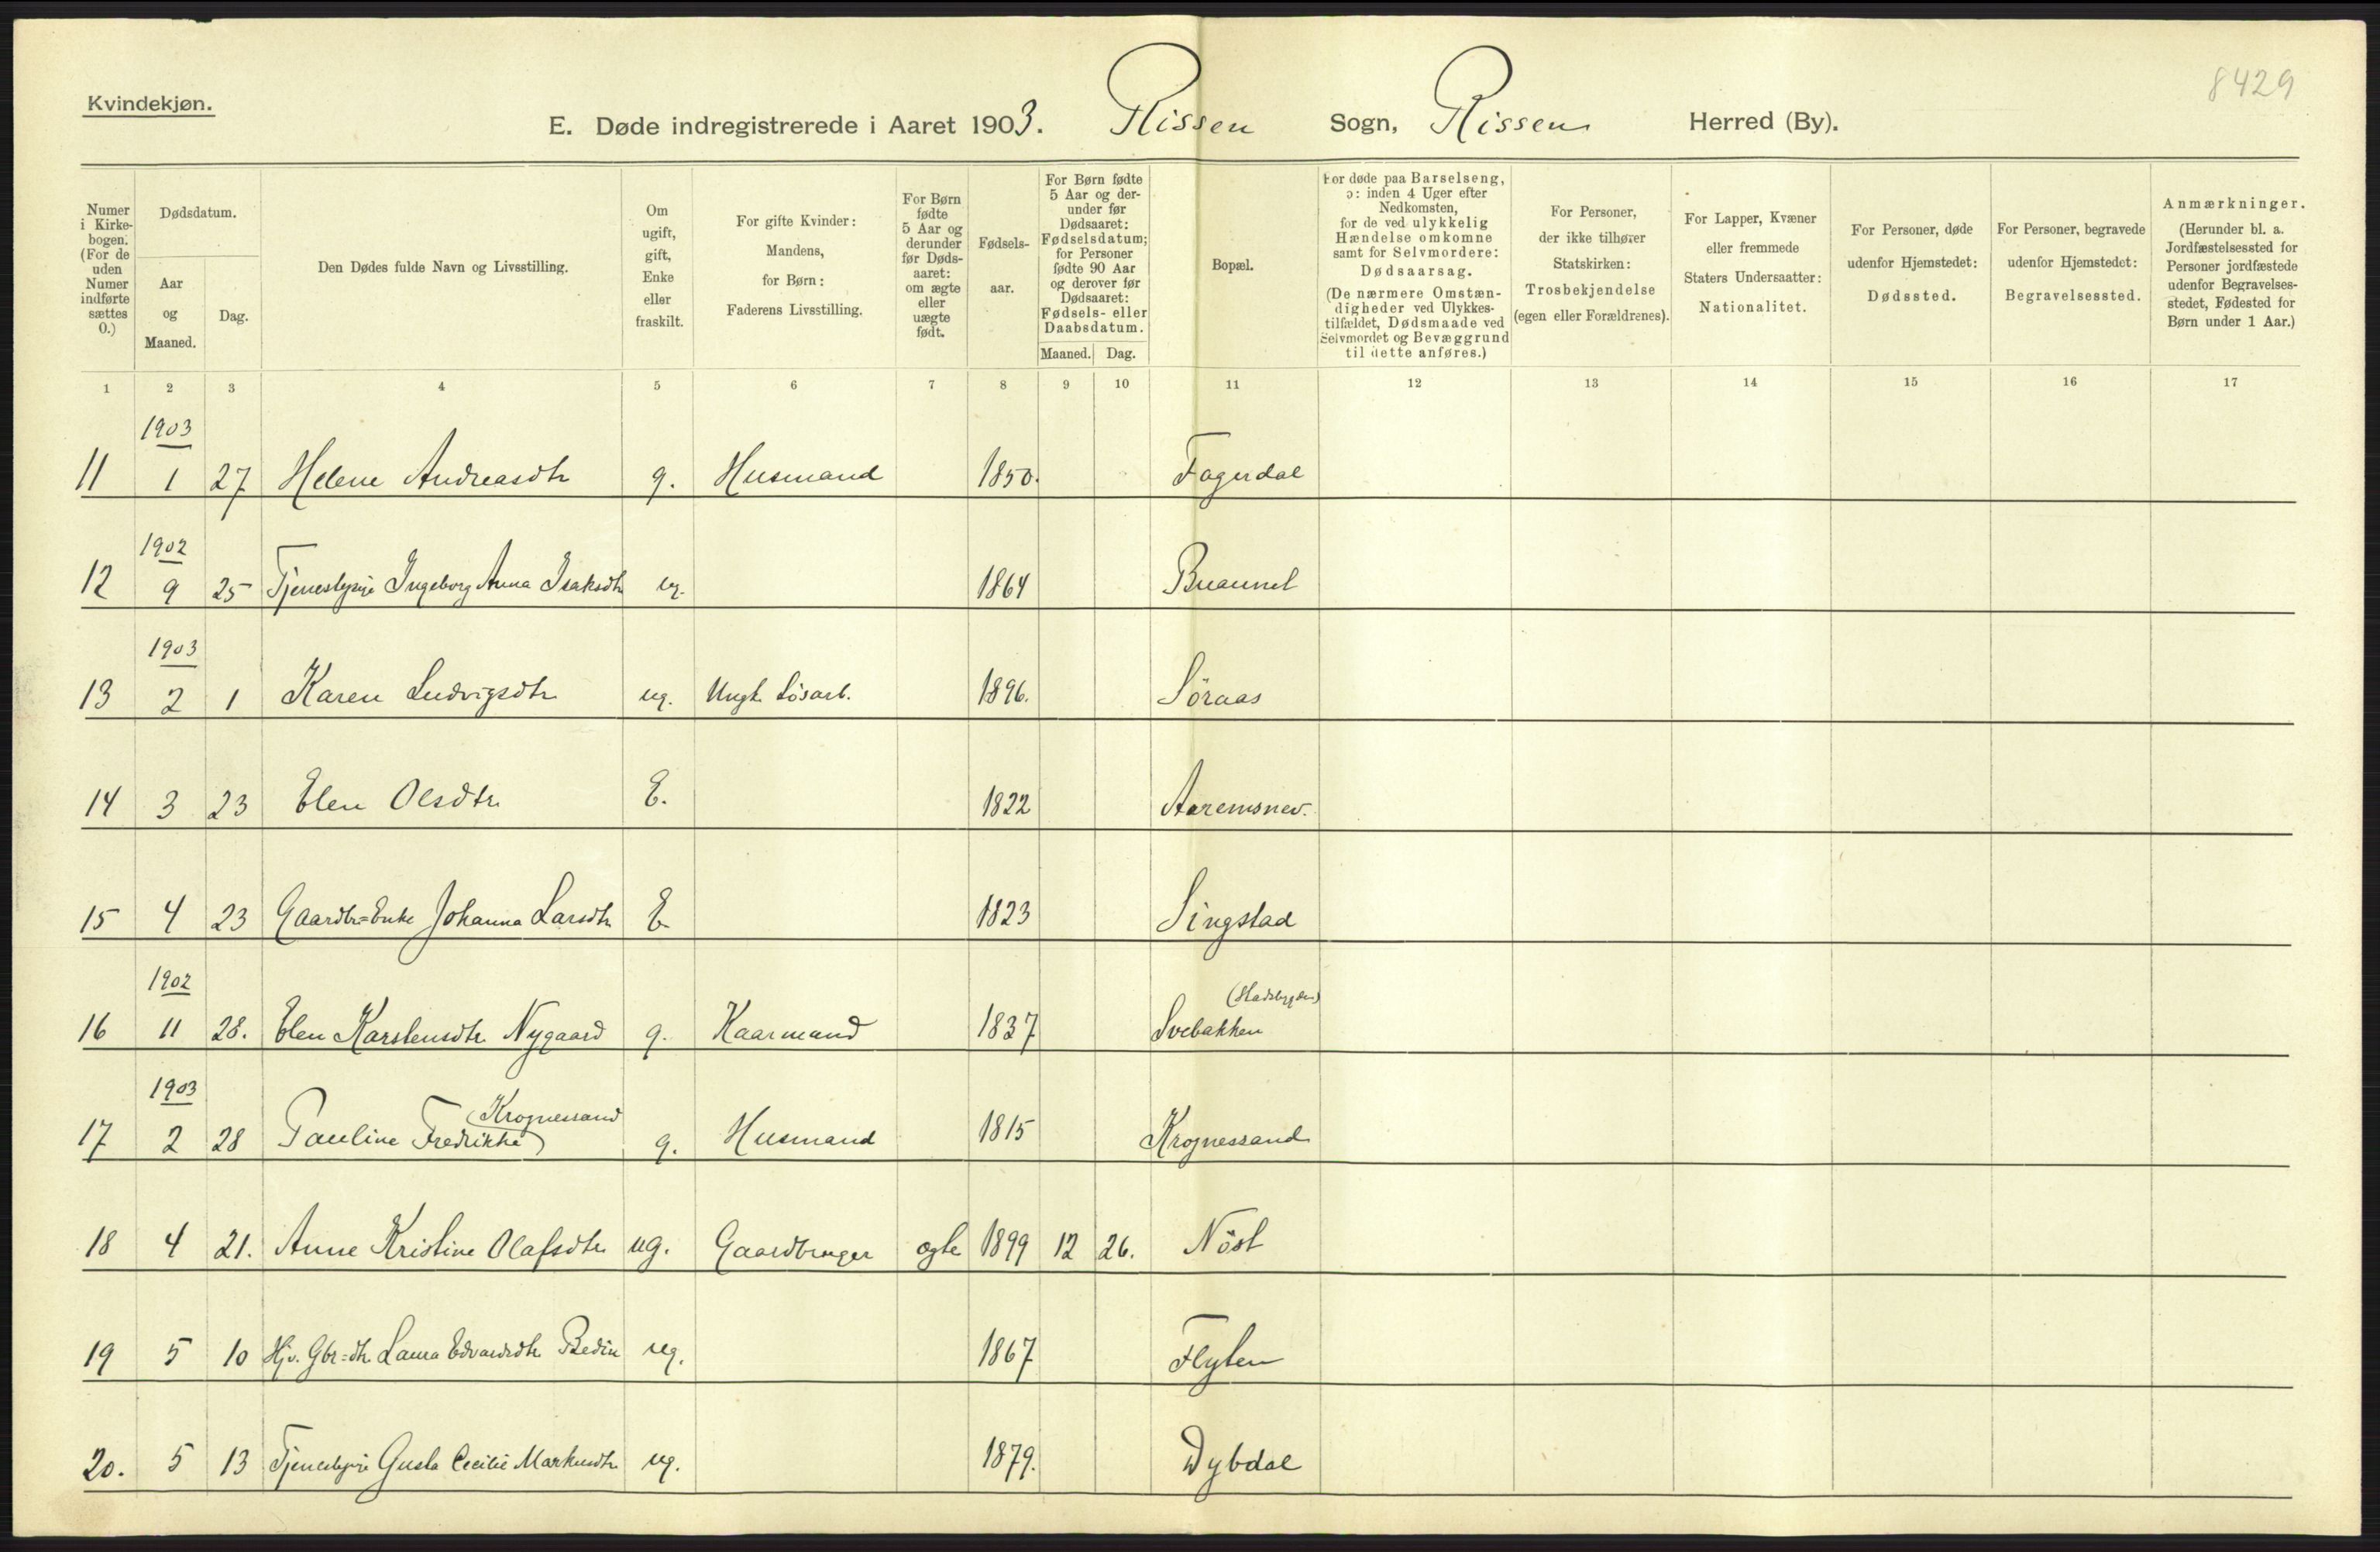 8429
Kvindekjøn.
E. Døde indregistrerede i Aaret 1903. Rissen Sogn, Rissen Herred (By).
Numer i Kirkebogen. (For de uden Numer indførte sættes 0.)
Dødsdatum.
Aar og Maaned.
Dag.
Den Dødes fulde Navn og Livsstilling.
Om ugift, gift, Enke eller fraskilt.
For gifte Kvinder: Mandens, for Børn: Faderens Livsstilling.
For Børn fødte 5 Aar og derunder før Dødsaaret: om ægte eller uægte født.
Fødselsaar.
For Børn fødte 5 Aar og derunder før Dødsaaret: Fødselsdatum; for Personer fødte 90 Aar og derover før Dødsaaret: Fødsels- eller Daabsdatum.
Maaned. Dag.
Bopæl.
For døde paa Barselseng, ɔ: inden 4 Uger efter Nedkomsten, for de ved ulykkelig Hændelse omkomne samt for Selvmordere: Dødsaarsag. (De nærmere Omstændigheder ved Ulykkestilfældet, Dødsmaade ved Selvmordet og Bevæggrund til dette anføres.)
For Personer, der ikke tilhører Statskirken: Trosbekjendelse (egen eller Forældrenes).
For Lapper, Kvæner eller fremmede Staters Undersaatter: Nationalitet.
For Personer, døde udenfor Hjemstedet: Dødssted.
For Personer, begravede udenfor Hjemstedet: Begravelsessted.
Anmærkninger. (Herunder bl. a. Jordfæstelsessted for Personer jordfæstede udenfor Begravelsesstedet, Fødested for Børn under 1 Aar.)
1 2 3 4 5 6 7 8 9 10 11 12 13 14 15 16 17
1903
11 1 27 Helene Andreasdtr g. Husmand 1850. Fagerdal
1902
12 9 25 Tjenestepige Ingeborg Anna Isaksdtr ug. 1864
1903
13 2 1 Karen Ludvigsdtr ug. Ungk. Løsarb. 1896. Söraas
14 3 23 Elen Olsdtr. E. 1822
15 4 23 Gaardbr=Enke Johanna Larsdtr E 1823 Singstad
1902
(Stadsbygden)
16 11 28. Elen Karstensdtr. Nygaard g. Kaarmand 1837 Svebakken
1903
(Krognessand)
17 2 28 Pauline Fredrikke g. Husmand 1815 Krognessand
18 4 21. Anne Kristine Olafsdtr ug. Gaardbruger ægte 1899 12 26. Nöst
19 5 10 Hjv. Gbr=dtr. Laura Edvardsdtr ug. 1867 Flyten
20. 5 13 Tjenestepige Gusta Cecilie Markusdtr ug. 1879. Dybdal